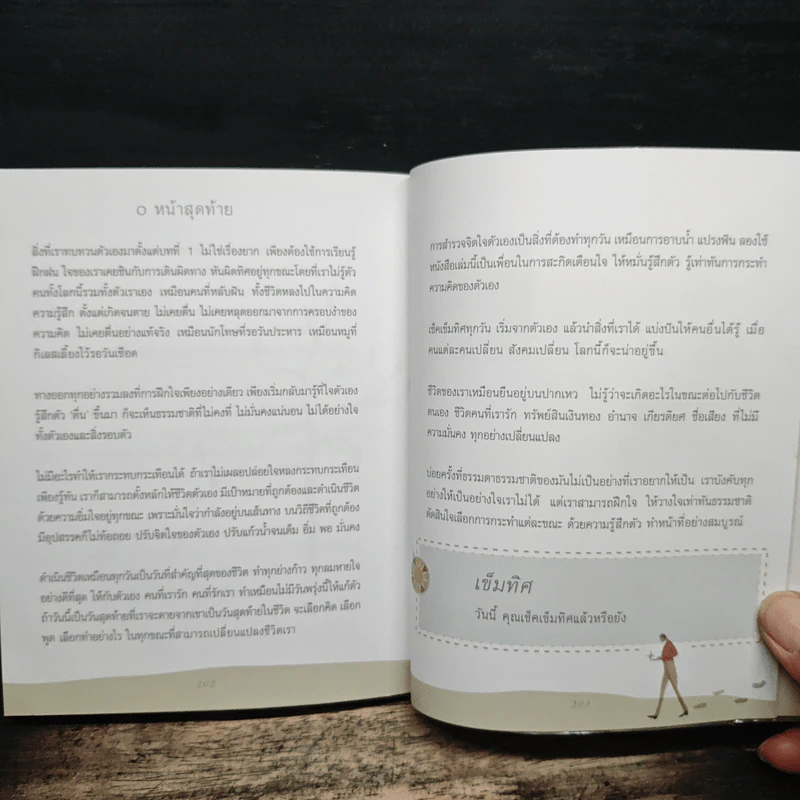 ๐ หน้าสุดท้าย
สิ่งที่เราทบทวนตัวเองมาตั้งแต่บทที่ 1 ไม่ใช่เรื่องยาก เพียงต้องใช้การเรียนรู้
ฝึกฝน ใจของเราเคยชินกับการเดินผิดทาง หันผิดทิศอยู่ทุกขณะโดยที่เราไม่รู้ตัว
คนทั้งโลกนี้รวมทั้งตัวเราเอง เหมือนคนที่หลับฝัน ทั้งชีวิตหลงไปในความคิด
ความรู้สึก ตั้งแต่เกิดจนตาย ไม่เคยตื่น ไม่เคยหลุดออกมาจากการครอบงำของ
ความคิด ไม่เคยตื่นอย่างแท้จริง เหมือนนักโทษที่รอวันประหาร เหมือนหมูที่
กิเลสเลี้ยงไว้รอวันเชือด
ทางออกทุกอย่างรวมลงที่การฝึกใจเพียงอย่างเดียว เพียงเริ่มกลับมารู้ที่ใจตัวเอง
รู้สึกตัว 'ตื่น' ขึ้นมา ก็จะเห็นธรรมชาติที่ไม่คงที่ ไม่มั่นคงแน่นอน ไม่ได้อย่างใจ
ทั้งตัวเองและสิ่งรอบตัว
ไม่มีอะไรทำให้เรากระทบกระเทือนได้ ถ้าเราไม่เผลอปล่อยใจหลงกระทบกระเทือน
เพียงรู้ทัน เราก็สามารถตั้งหลักให้ชีวิตตัวเอง มีเป้าหมายที่ถูกต้องและดำเนินชีวิต
ด้วยความอิ่มใจอยู่ทุกขณะ เพราะมั่นใจว่ากำลังอยู่บนเส้นทาง บนวิถีชีวิตที่ถูกต้อง
มีอุปสรรคก็ไม่ท้อถอย ปรับจิตใจของตัวเอง ปรับแก้วน้ำจนเต็ม อิ่ม พอ มั่นคง
ดำเนินชีวิตเหมือนทุกวันเป็นวันที่สำคัญที่สุดของชีวิต ทำทุกย่างก้าว ทุกลมหายใจ
อย่างดีที่สุด ให้กับตัวเอง คนที่เรารัก คนที่รักเรา ทำเหมือนไม่มีวันพรุ่งนี้ให้แก้ตัว
ถ้าวันนี้เป็นวันสุดท้ายที่เราจะตายจากเขาเป็นวันสุดท้ายในชีวิต จะเลือกคิด เลือก
พูด เลือกทำอย่างไร ในทุกขณะที่สามารถเปลี่ยนแปลงชีวิตเรา
202
การสำรวจจิตใจตัวเองเป็นสิ่งที่ต้องทำทุกวัน เหมือนการอาบน้ำ แปรงฟัน ลองใช้
หนังสือเล่มนี้เป็นเพื่อนในการสะกิดเตือนใจ ให้หมั่นรู้สึกตัว รู้เท่าทันการกระทำ
ความคิดของตัวเอง
เช็คเข็มทิศทุกวัน เริ่มจากตัวเอง แล้วนำสิ่งที่เราได้ แบ่งปันให้คนอื่นได้รู้ เมื่อ
คนแต่ละคนเปลี่ยน สังคมเปลี่ยน โลกนี้ก็จะน่าอยู่ขึ้น
ชีวิตของเราเหมือนยืนอยู่บนปากเหว ไม่รู้ว่าจะเกิดอะไรในขณะต่อไปกับชีวิต
ตนเอง ชีวิตคนที่เรารัก ทรัพย์สินเงินทอง อำนาจ เกียรติยศ ชื่อเสียง ที่ไม่มี
ความมั่นคง ทุกอย่างเปลี่ยนแปลง
บ่อยครั้งที่ธรรมดาธรรมชาติของมันไม่เป็นอย่างที่เราอยากให้เป็น เราบังคับทุก
อย่างให้เป็นอย่างใจเราไม่ได้ แต่เราสามารถฝึกใจ ให้วางใจเท่าทันธรรมชาติ
ตัดสินใจเลือกการกระทำแต่ละขณะ ด้วยความรู้สึกตัว ทำหน้าที่อย่างสมบูรณ์
เข็มทิศ
วันนี้ คุณเช็คเข็มทิศแล้วหรือยัง
203